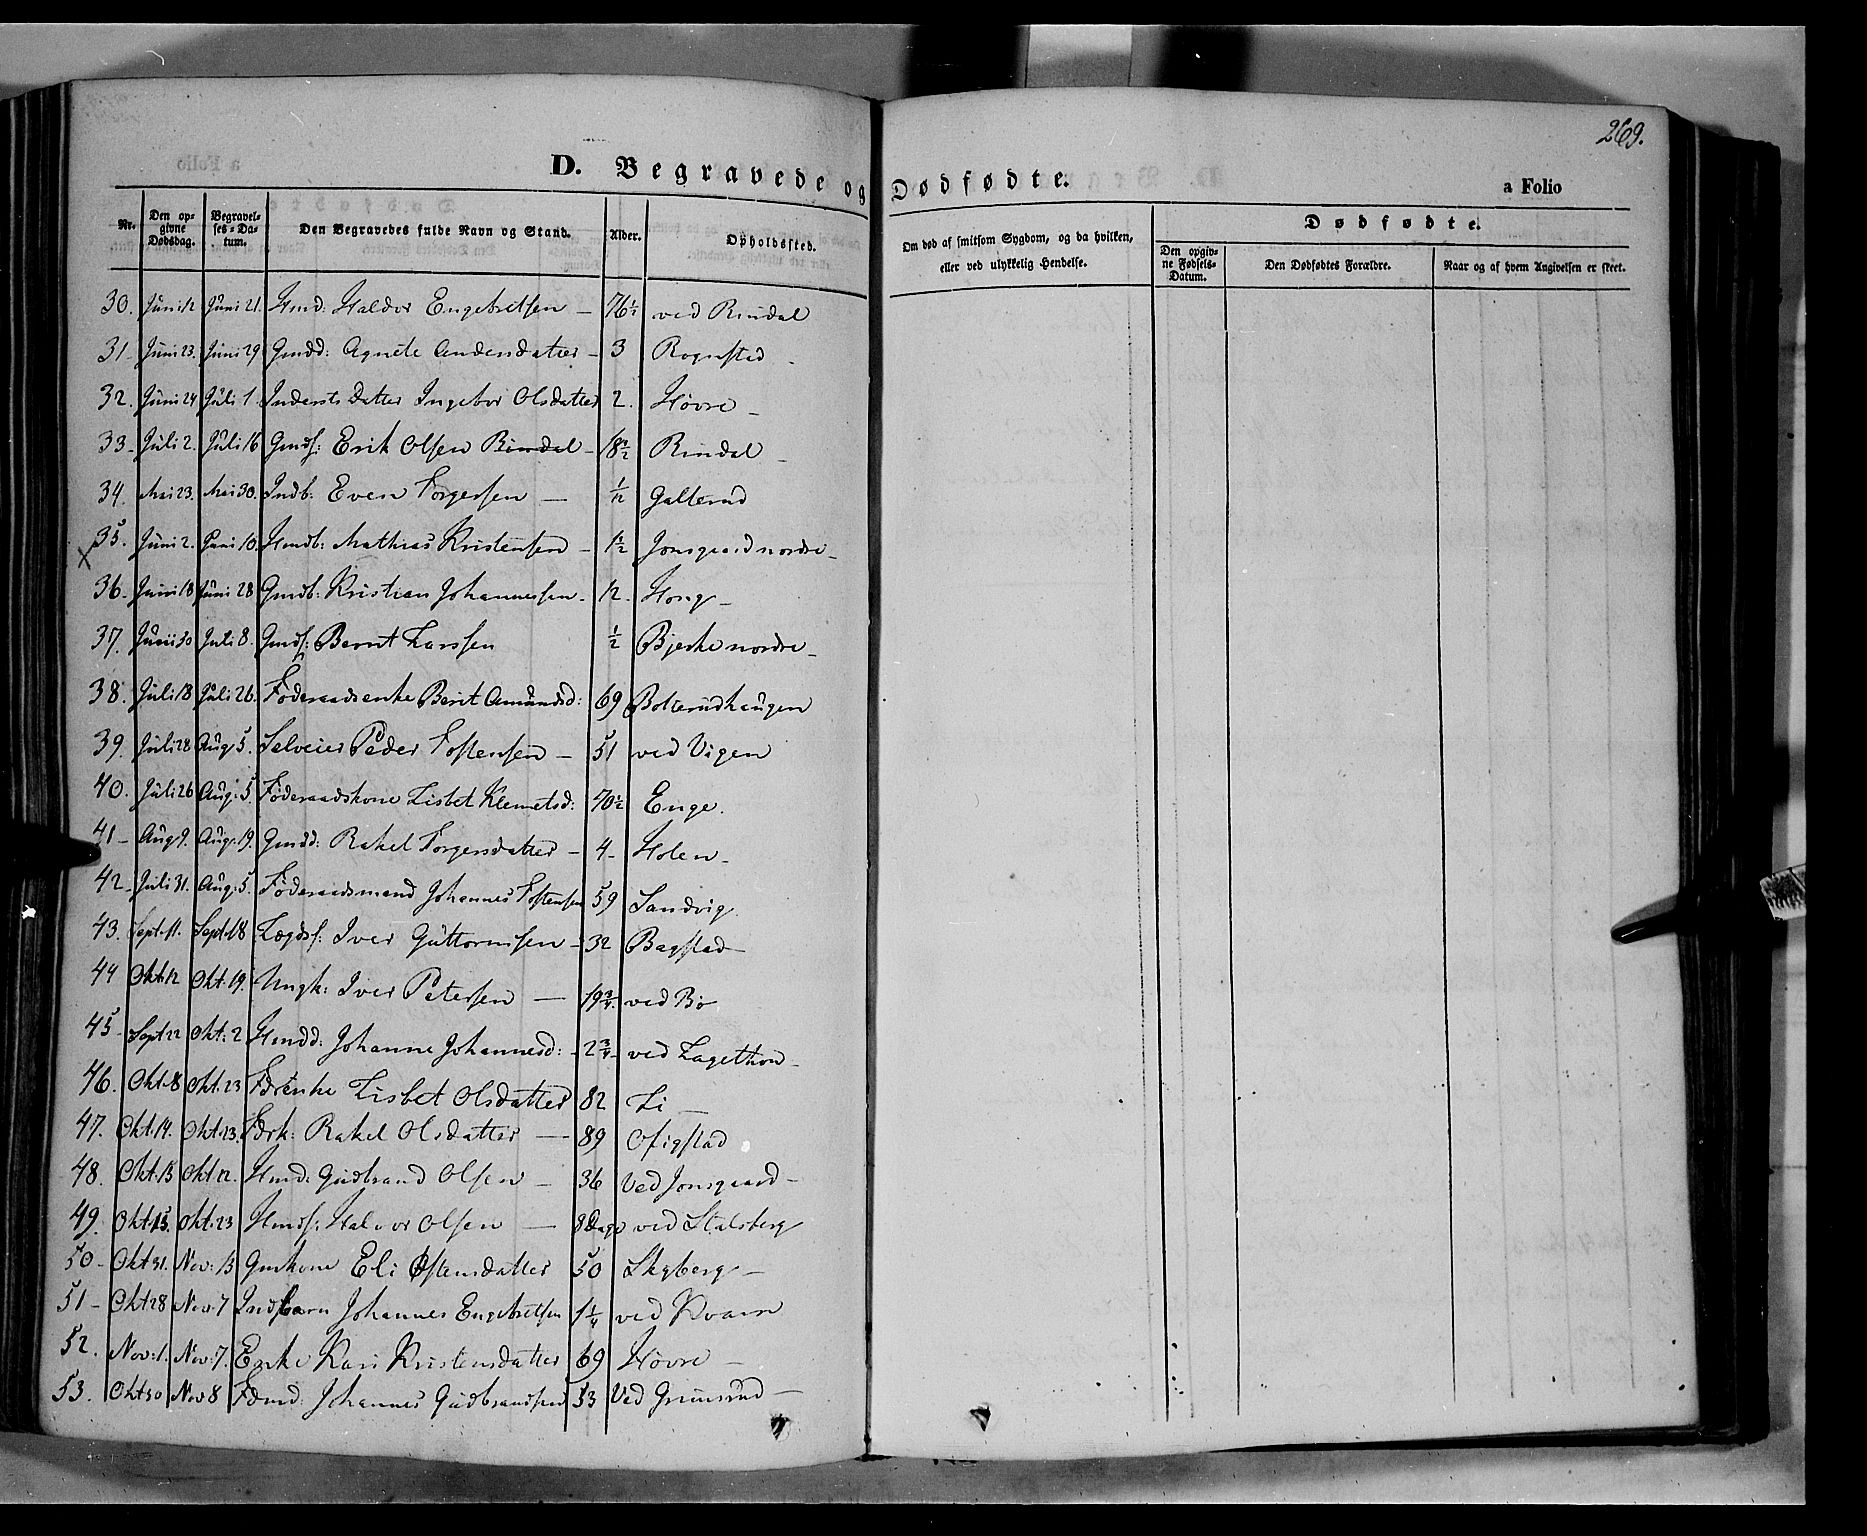 269.
D. Begravede og Dødfødte.
a Folio
Nr. Den opgivne Dødsdag. Begravelses-Datum. Den Begravedes fulde Navn og Stand. Alder. Opholdssted. Om død af smitsom Sygdom, og da hvilken, eller ved ulykkelig Hendelse. Dødfødte. Den opgivne Fødsels-Datum. Den Dødfødtes Forældre. Naar og af hvem Angivelsen er skeet.
30. Juni 12 Juni 21. Hmd: Haldor Engebretsen — 76½ ved Rindal
31. Juni 23. Juni 29 Gmdd: Agnete Andersdatter — 3 Rognstad —
32. Juni 24 Juli 1. Inderstsdatter Ingebor Olsdatter 2. Høvre —
33. Juli 2. Juli 16 Gmds: Erik Olsen Rindal — 18½ Rindal —
34. Mai 23. Mai 30. Indb: Even Torgersen — 1/12 Galterud
X 35. Juni 2. Juni 10. Hmdb: Mathias Kristensen — 1½ Jonsgaard nordre —
36. Juni 18 Juni 28 Gmdb: Kristian Johannessen — 12. Hong —
37. Juni 30 Juli 8. Gmds: Bernt Larssen ½ Bjerke nordre —
38. Juli 18 Juli 26. Føderaadsenke Berit Amundsd: 69 Bolterudhaugen
39. Juli 28 Aug. 5. Selveier Peder Tostensen — 51 ved Vigen
40. Juli 26 Aug: 5. Føderaadskone Lisbet Klemetsd: 70½ Enge.
41 — Aug 9. Aug. 19. Gmdd: Rakel Torgersdatter — 4 — Holen —
42. Juli 31. Aug. 5. Føderaadsmand Johannes Tostensen 59 Sandvig
43. Sept. 11. Sept. 18 Lægds: Iver Guttormsen — 32 Bagstad —
44 Okt. 12 Okt. 19. Ungk: Iver Petersen — 19¾ ved Bø
45 — Sept 22 Okt: 2 Hmdd: Johanne Johannesd: 2¾ ved Lagethon —
46. Okt. 8 Okt. 23 Fdrenke Lisbet Olsdatter 82 Li —
47. Okt. 14. Okt. 23. Fdrk: Rakel Olsdatter — 89 Ofigstad
48. Okt. 13 Okt 12. Hmd: Gudbrand Olsen — 36 Ved Jonsgaard —
49. Okt. 15. Okt. 23 Hmds: Halvor Olsen — 8 Dage ved Stalsberg
50 — Okt 31. Nov: 13 Gmkone Eli Østensdatter 50 Skyberg —
51 — Okt 28 Nov. 7 Indsbarn Johannes Engebretsen 1¼ ved Kvarn
52. Nov: 1. Nov: 7. Enke Kari Kristensdatter 69 Høvre —
53. Okt 30 Nov 8 Fdmd. Johannes Gudbrandsen 53 Ved Grimsrud —